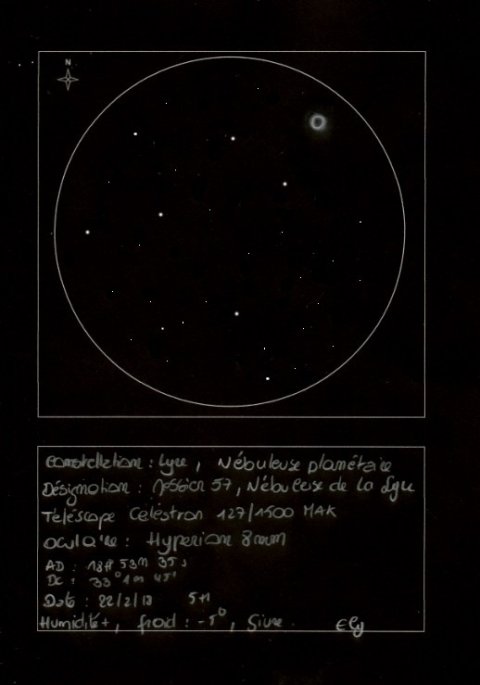 N
Constellation : Lyre, Nébuleuse planétaire
Désignation : Messier 57, Nébuleuse de la Lyre
Téléscope Celéstron 127/1500 MAK
oculaire : Hyperion 8mm
AD : 18h 53m 35s
DC : 33° 1m 45s
Date : 22/2/18 5H
Humidité+, froid : -5°, Givre. Ely